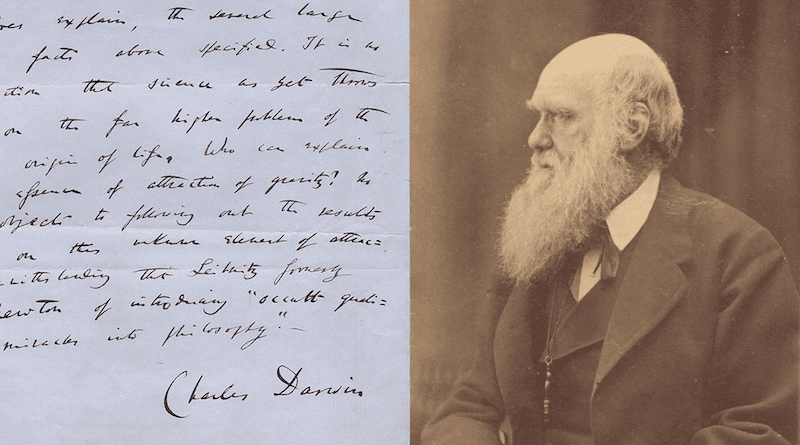 oes explain, the several large
facts above specified. It is no
tion that science as yet throws
on the far higher problem of the
origin of life. Who can explain
essence of attraction of gravity? No
objects to following out the results
on this unknown element of attrac=
withstanding that Leibnitz formerly
ewton of introducing "occult quali=
miracles into philosophy." —
Charles Darwin